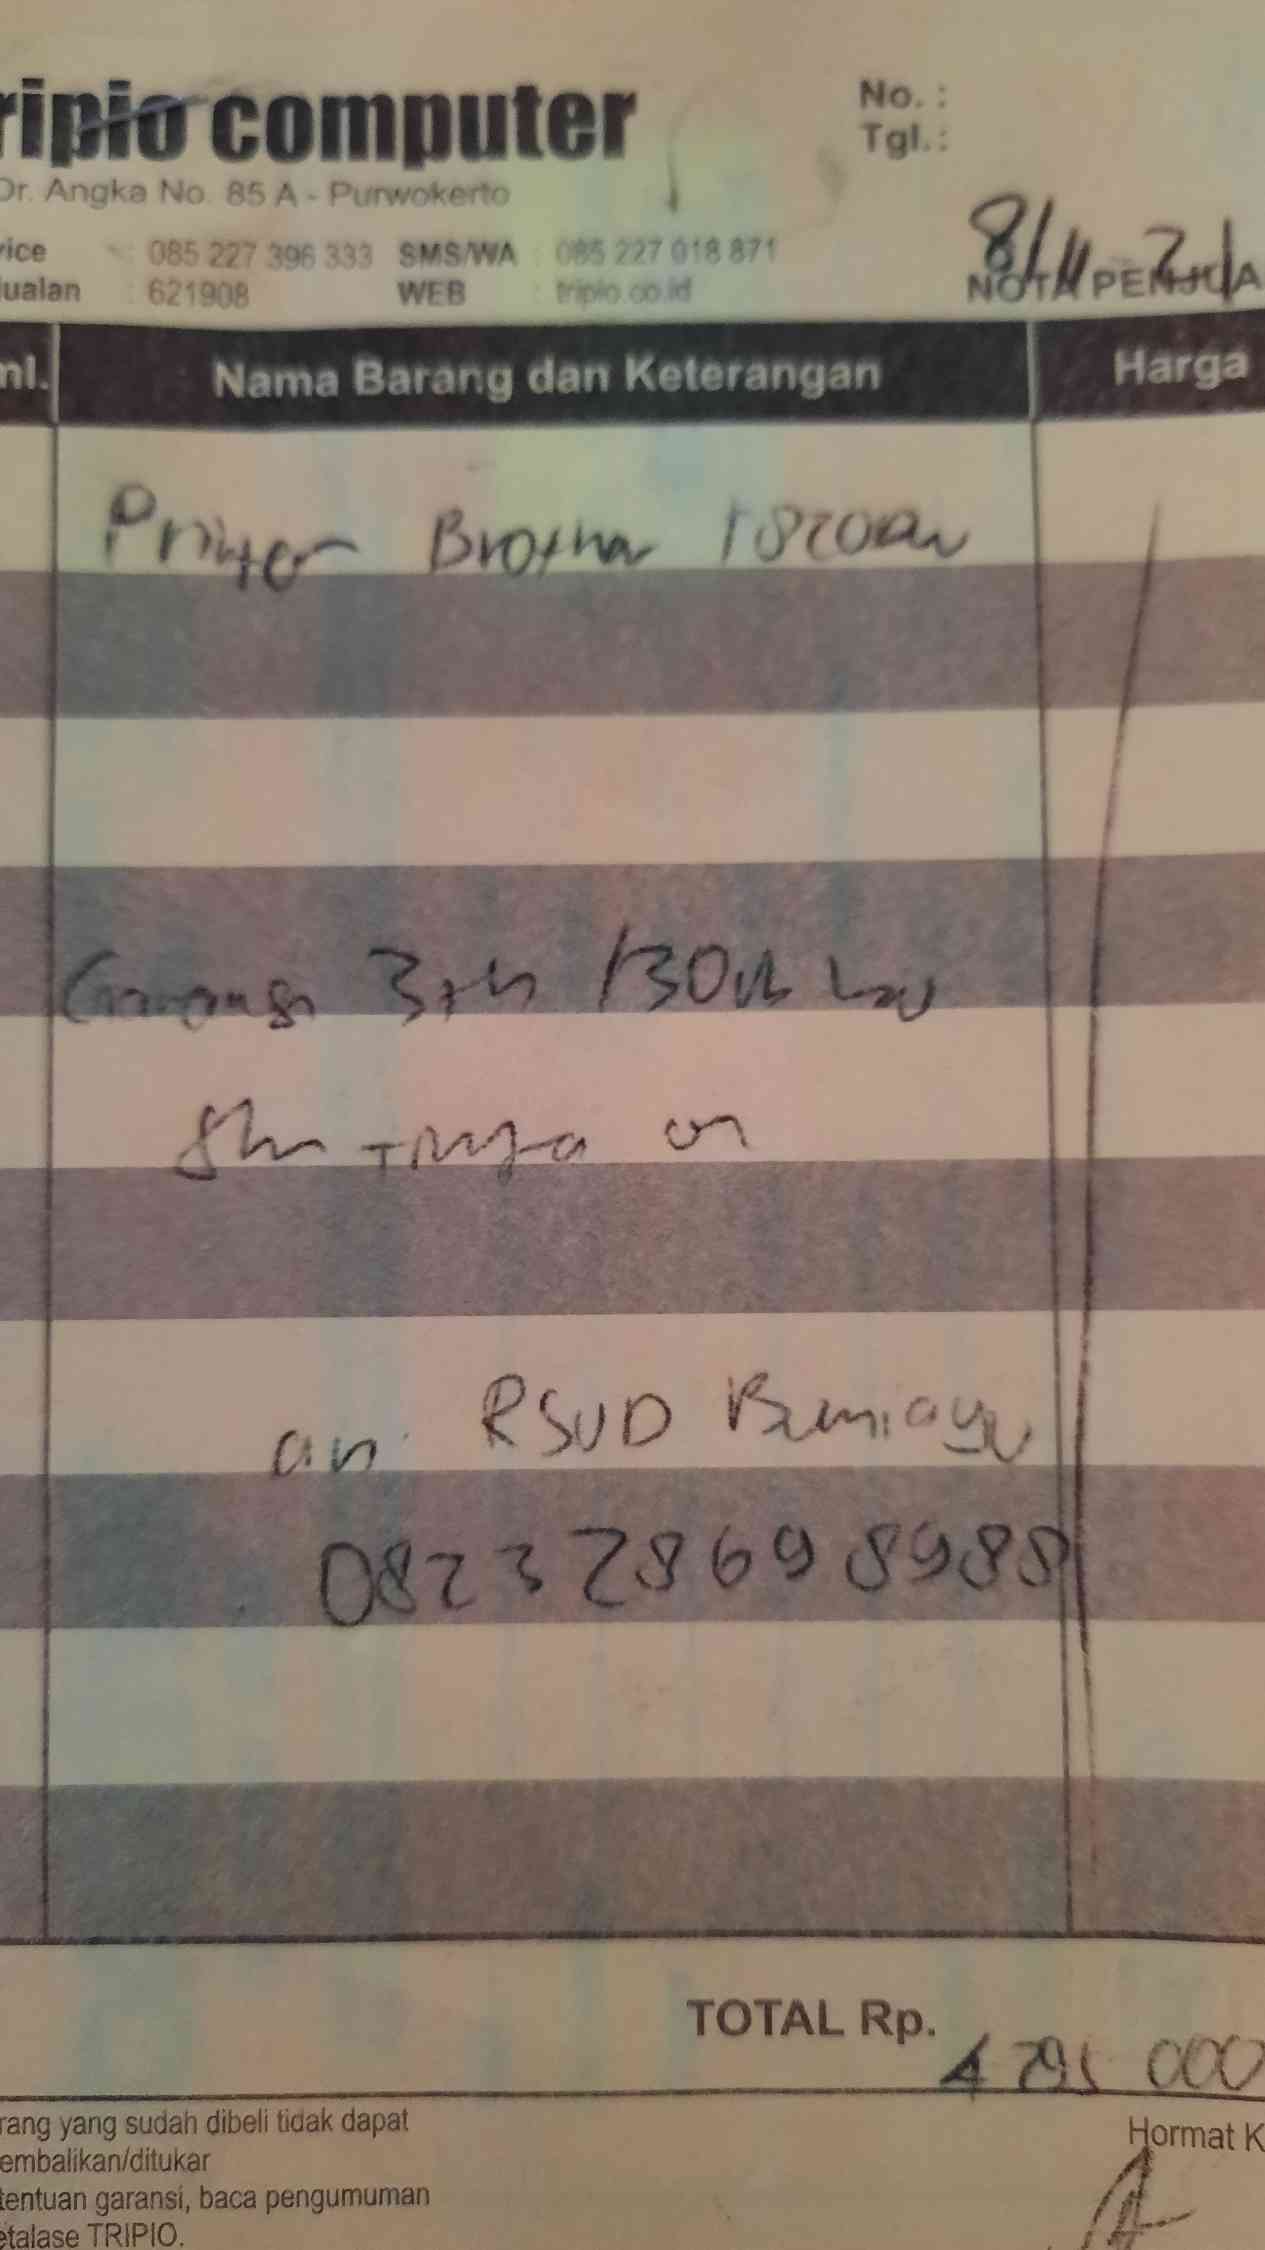 ripio computer
No. :
Tgl. :
Dr. Angka No. 85 A - Purwokerto
8/11 21
rice : 085 227 396 333 SMS/WA : 085 227 018 871
NOTA PENJUA
jualan : 621908 WEB : tripio.co.id
ml. Nama Barang dan Keterangan Harga
Printer Brother T820DW
Garansi 3th /30rb
an RSUD Bumiayu
082328698988
TOTAL Rp. 4 795 000
rang yang sudah dibeli tidak dapat
embalikan/ditukar
Hormat K
tentuan garansi, baca pengumuman
etalase TRIPIO.